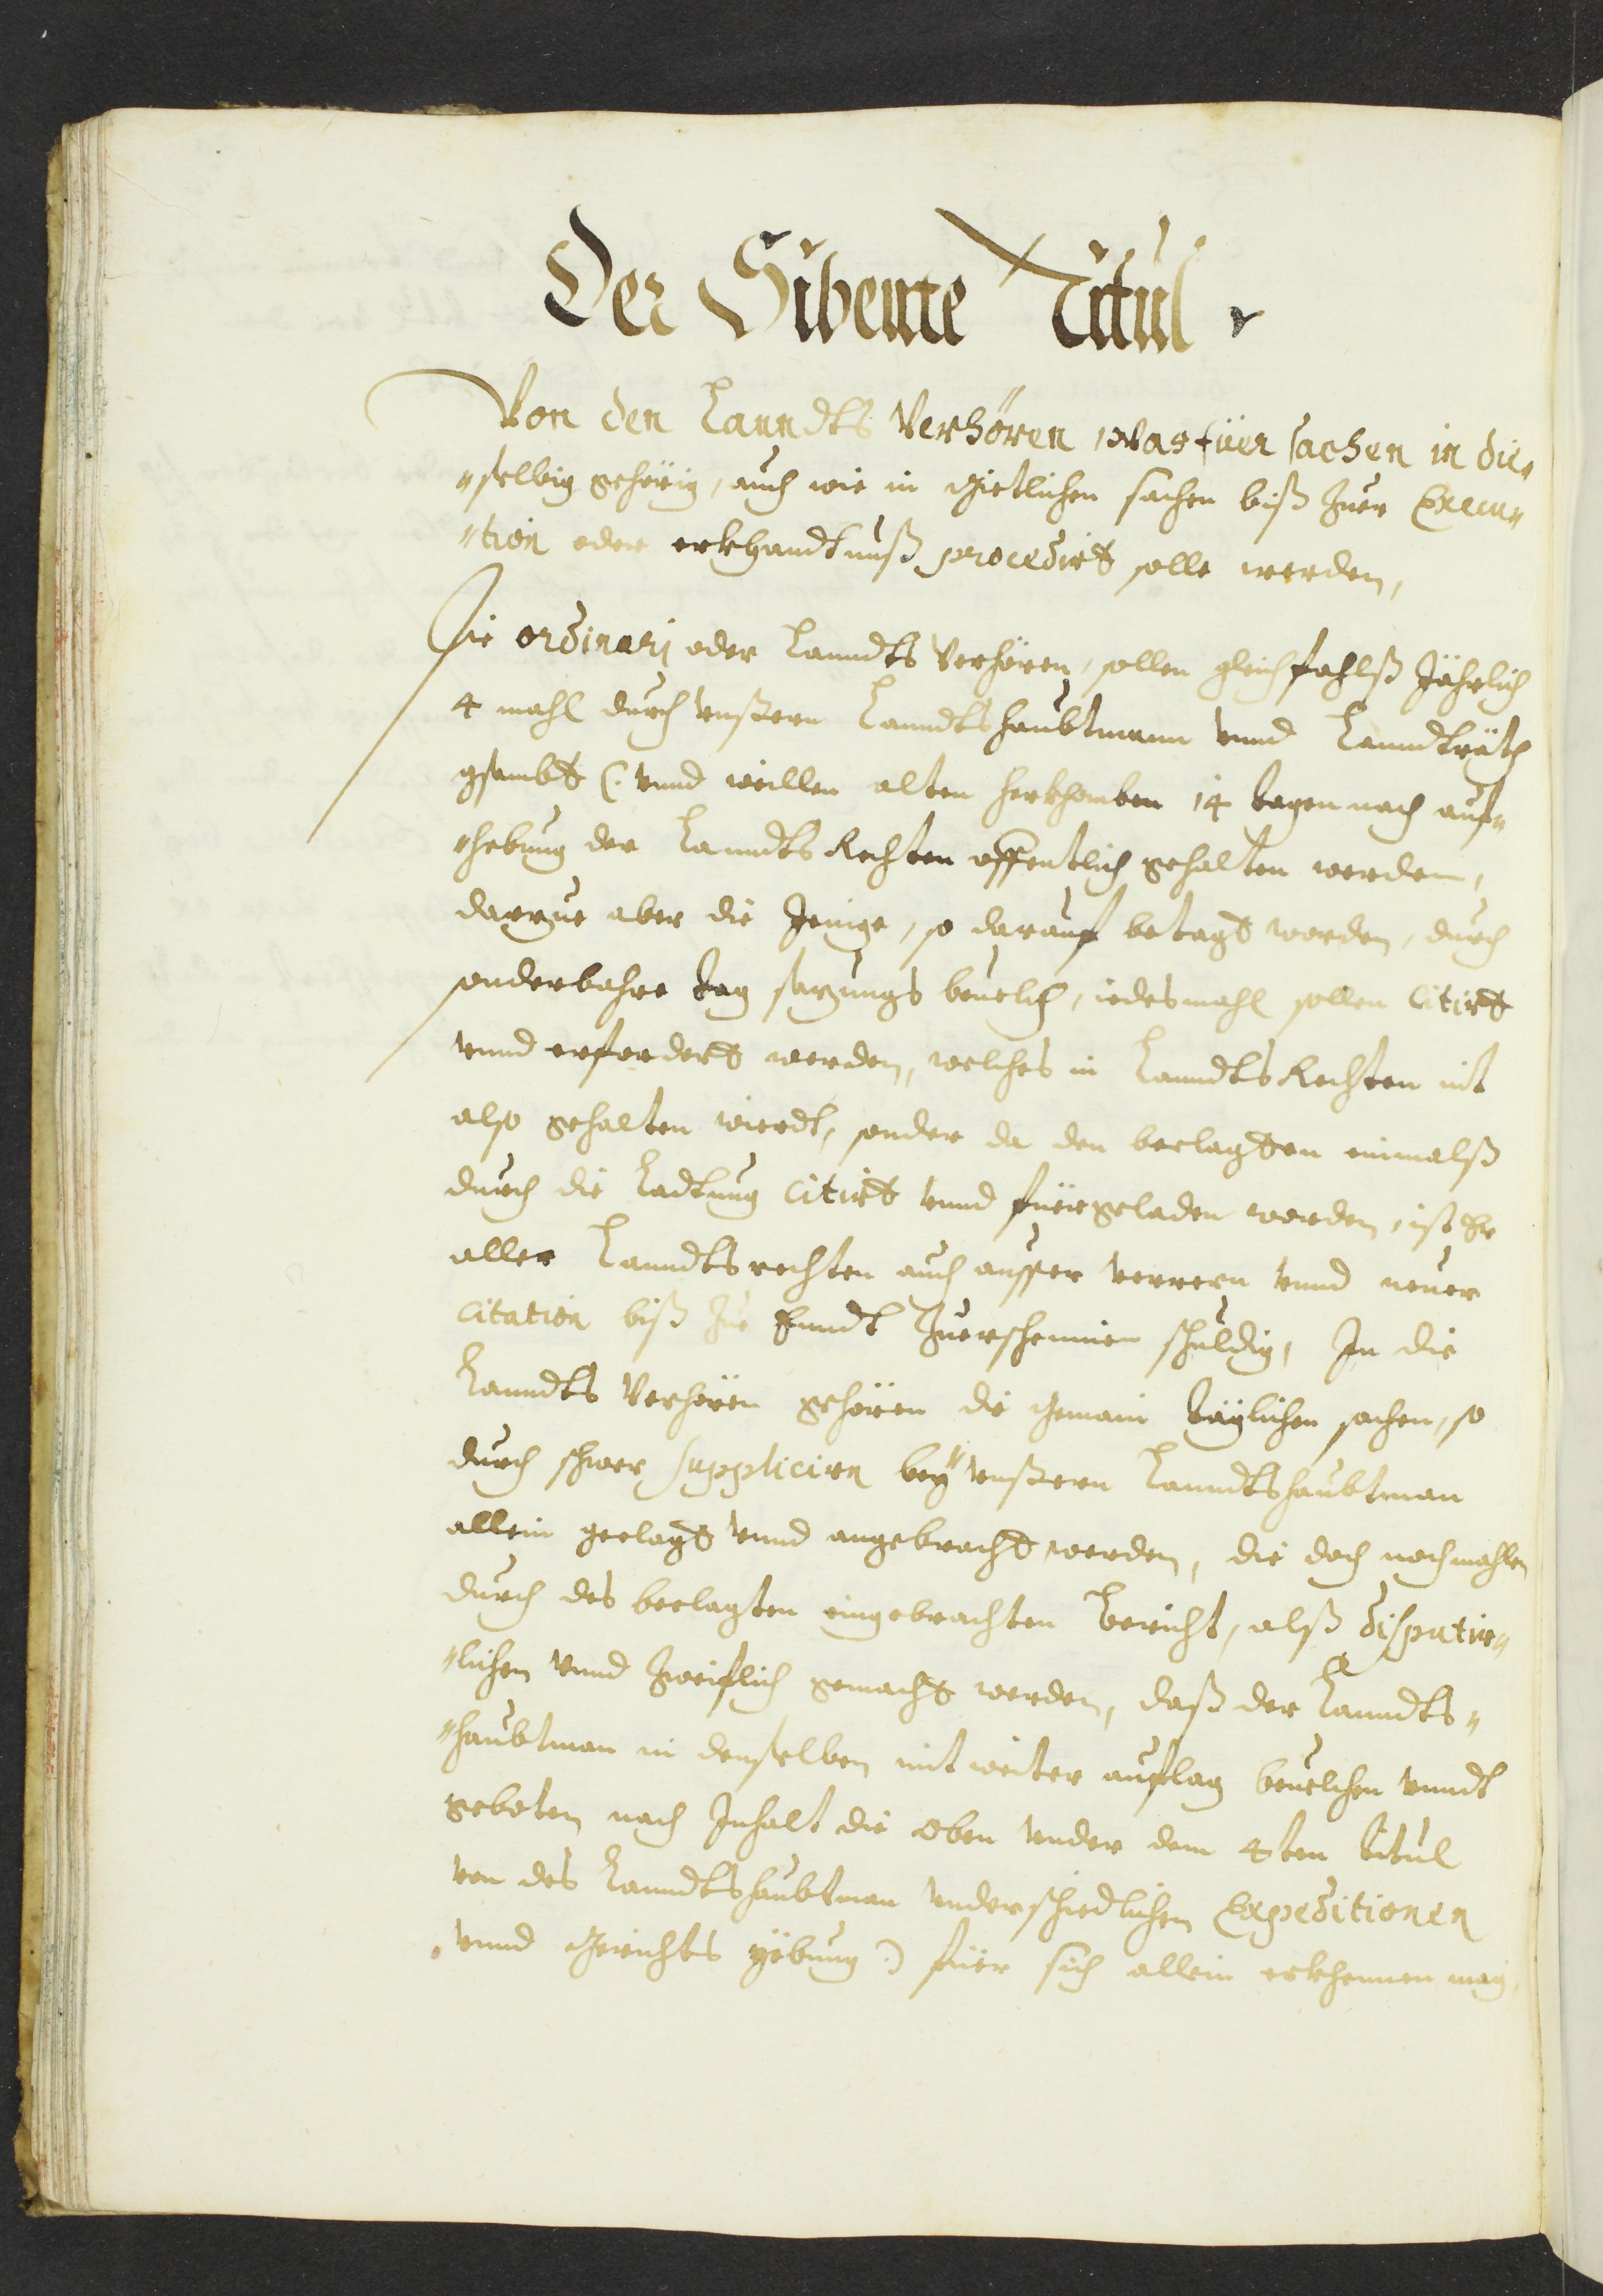 Der Sibente Titul
Von den Lanndts Verhören, was füer sachen in die„
„selbig gehörig, auch wie in Gietlichen sachen biß Zuer Execu„
„tion oder erkhandtnuß procedirt solle werden,
Die ordinarj oder Lanndts Verhören, sollen gleichfahlß Jährlich
4 mahl durch vnßern Lanndtshaubtmann vnnd Lanndträth
gsambt (: vnnd willen alten herkhomben 14 tagen nach auf„
„hebung der Lanndts Rechten offentlich gehalten werden,
darzue aber die Jenige, so darauf betagt worden, durch
sonderbahre tag sazungs beuelch, iedesmahl sollen Citirt
vnnd erfordert werden, welches in Lanndts Rechten nit
also gehalten wierdt, sonder da den beclagten einmalß
durch die Ladtung Citirt vnnd füergeladen worden, ist Er
aller Lanndtsrechten auch ausser verrern vnnd neuer
Citation biß Zue Enndt Zuerscheinen schuldig, In die
Lanndts Verhören gehören die Gemain täglichen sachen, so
durch schwer suppliciern bey vnßern Lanndtshaubtman
allein geclagt vnnd angebracht werden, die doch nochmahlen
durch des beclagten eingebrachten Bericht, alß disputir„
„lichen vnnd Zweiflich gemacht werden, daß der Lanndts„
„haubtman in denselben mit weiter auflag beuelchen vnndt
geboten nach Inhalt die oben vnder dem 4ten titul
von des Lanndtshaubtman vnderschiedlichen Expeditionen
vnnd Gerichts yëbung :) füer sich allein erkhennen mag,